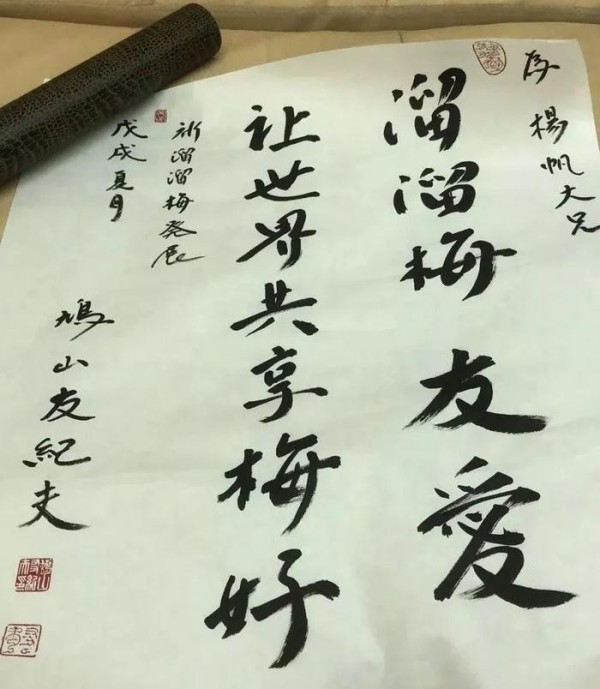 楊帆大兄
溜溜梅 友愛
让世界共享梅好
祈溜溜梅発展
戊戌夏月
鳩山友紀夫